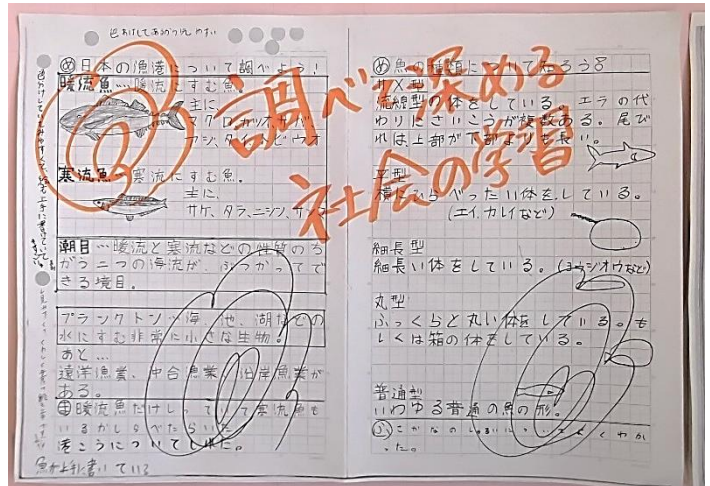 調べ深める
社会の学習
色わけしてあるから見やすい
め日本の漁港について調べよう!
暖流魚…暖流にすむ魚。
主に、
マグロ、カツオ、サバ
アジ、タイ、トビウオ
寒流魚…寒流にすむ魚。
主に、
サケ、タラ、ニシン、サンマ
潮目…暖流と寒流などの性質のち
がう二つの海流が、ぶつかってで
きる境目。
プランクトン…海、池、湖などの
水にすむ非常に小さな生物。
あと…
遠洋漁業、中合漁業、沿岸漁業が
ある。
暖流魚だけしっていて寒流魚も
いるか
港こうについて
魚が上手に書いている
め魚の種類について知ろう
サメ型
流線型の体をしている。エラの代
わりにさいこうが複数ある。尾び
れは上部が下部よりも長い。
平型
横にひらべったい体をしている。
(エイ、カレイなど)
細長型
細長い体をしている。(ヨウジウオなど)
丸型
ふっくらと丸い体をしている。も
しくは箱の体をしている。
普通型
いわゆる普通の魚の形。
ふさかなのしゅるいについてよくわか
った。